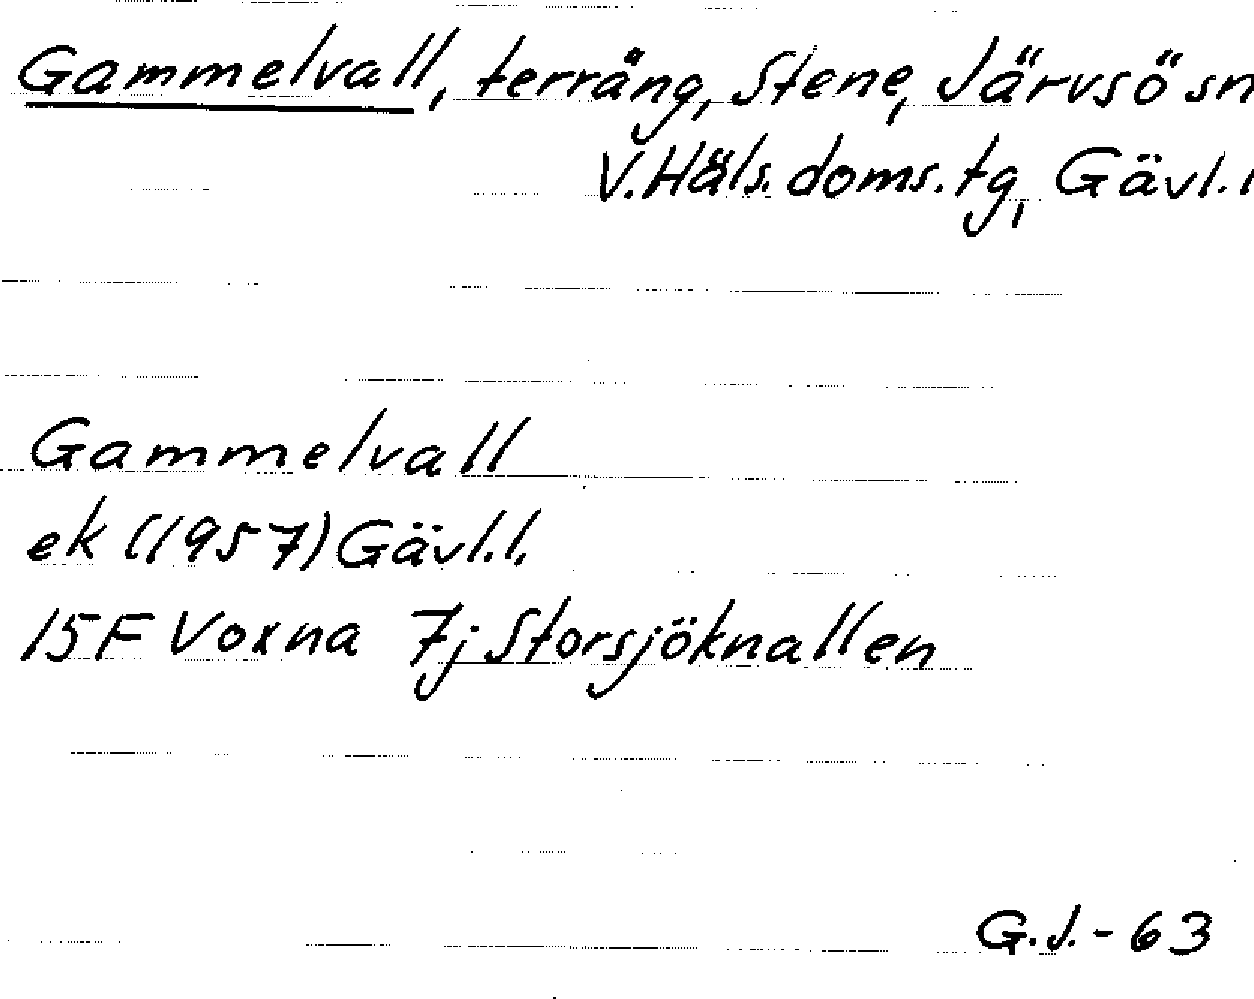 Gammelvall, terräng, Stene, Järvsö sn
V. Häls. doms. tg, Gävl. l
Gammelvall
ek (1957) Gävl. l.
15F Voxna 7j Storsjöknallen
G.J. - 63